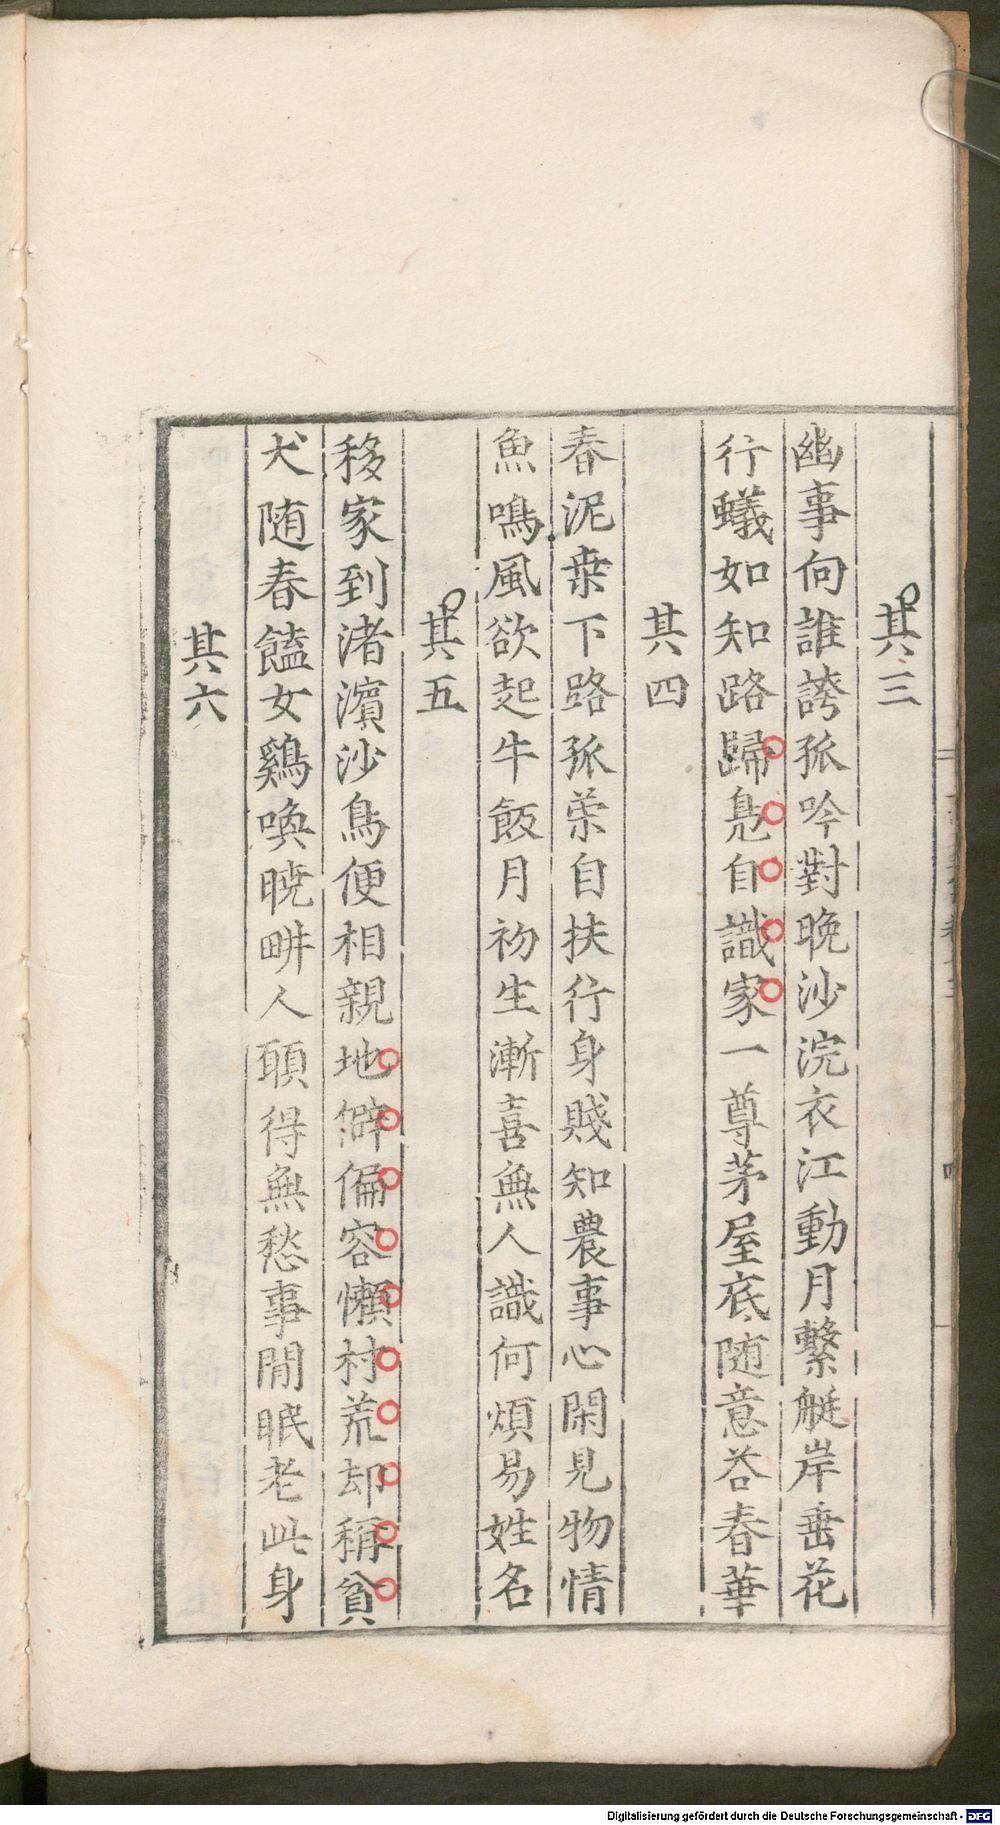 其三
幽事向誰誇孤吟對晚沙浣衣江動月繫艇岸垂花
行蟻如知路歸鳧自識家一尊茅屋底随意荅春華
其四
春泥桒下路孤荣自扶行身賤知農事心閑見物情
魚鳴風欲起牛飯月初生漸喜無人識何煩易姓名
其五
移家到渚濵沙鳥便相親地僻偏容懶村荒却稱貧
犬随春饁女鷄喚曉畊人願得無愁事閒眠老此身
其六
Digitalisierung gefördert durch die Deutsche Forschungsgemeinschaft - DFG